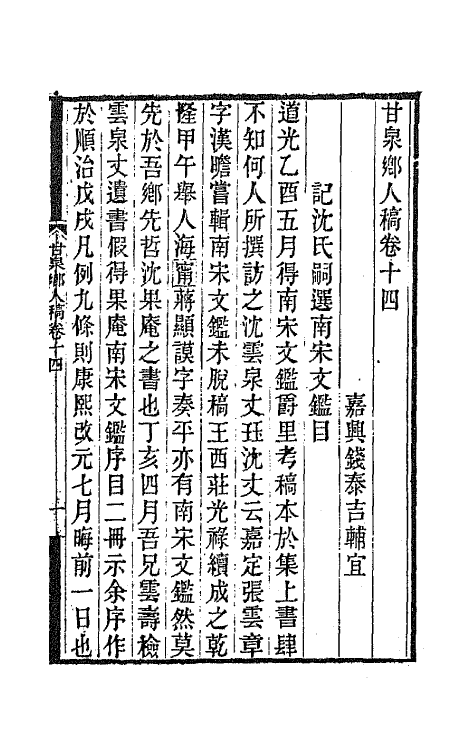 甘泉鄉人稿卷十四
嘉興錢泰吉輔宜
記沈氏嗣選南宋文鑑目
道光乙酉五月得南宋文鑑爵里考稿本於集上書肆
不知何人所撰訪之沈雲泉丈珏沈丈云嘉定張雲章
字漢瞻嘗輯南宋文鑑未脫稿王西莊光祿續成之乾
隆甲午舉人海甯蔣顯謨字奏平亦有南宋文鑑然莫
先於吾鄉先哲沈果庵之書也丁亥四月吾兄雲壽檢
雲泉丈遺書假得果庵南宋文鑑序目二冊示余序作
於順治戊戌凡例九條則康熙改元七月晦前一日也
甘泉鄉人稿卷十四